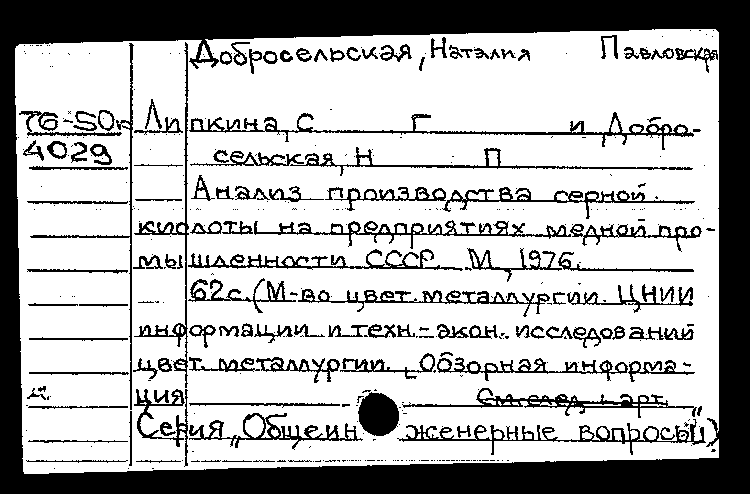 Добросельская, Наталия Павловская
76-50п Липкина, С Г и Добро-
4029 сельская, Н П
Анализ производства серной
кислоты на предприятиях медной про-
мышленности СССР. М., 1976.
62 с. (М-во цвет. металлургии. ЦНИИ
информации и техн.-экон. исследований
цвет. металлургии. Обзорная информа-
ция См. след. карт.
Серия „Общеинженерные вопросы")